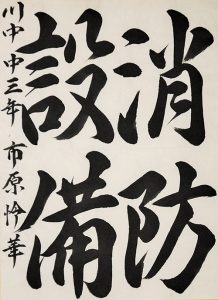 消防
設備
川中 中三年 市原怜華